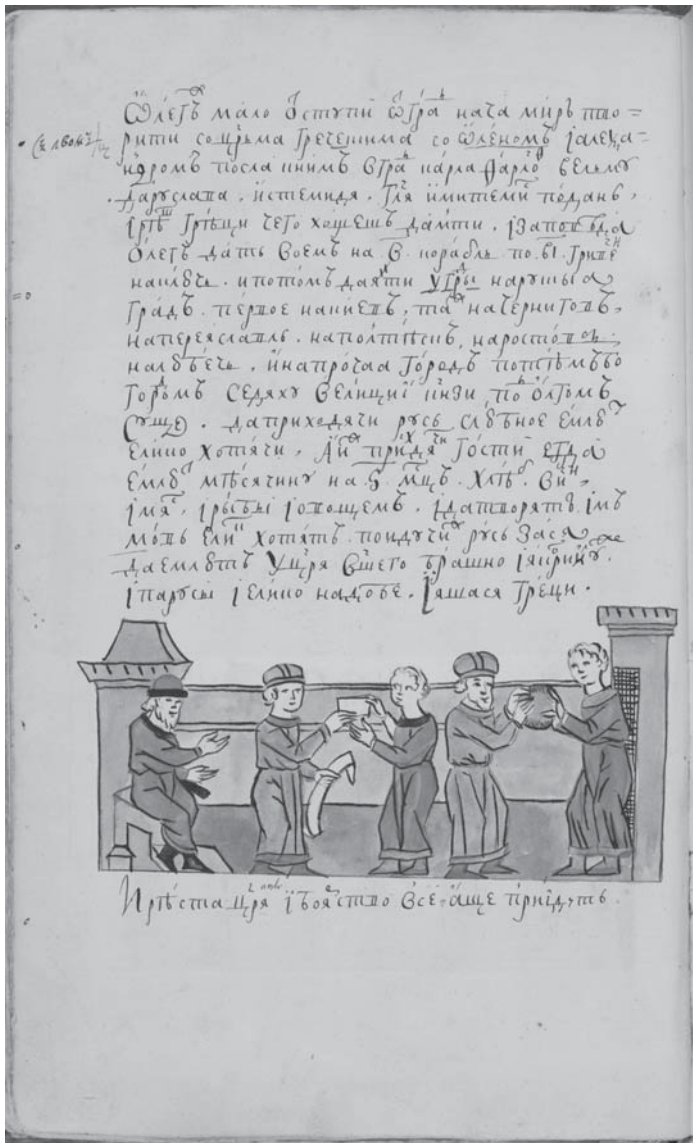 Ѿлегъ мало ѿступи ѿ гра нача миръ тво=
рити со црьма гречетима со ѿленомъ ꙇалеѯа=
ндромъ посла книмъ вгра карла фарло вельму
даруслава . истемидя . гля имитеми подань ,
ꙇрѣ грѣци чего хощешъ дамти . ꙇзаповѣда
Олегъ дать воемъ на . в . корабль по . вı . гриве
наключь . и потомъ даяти угры нарусыа
градъ . первое накиевъ , та начерниговъ ,
напереяславль . наполтѣскъ , наростовъ ,
налюбечь . инапрочаа городъ потѣмъ бо
горомъ седяху велиции кнзи по Ольгомъ
суще . даприходячи русь слюбное емлю
елико хотячи , Аи придя гости егда
емлю мѣсячину на . ѕ . мцъ . хлѣ . ви ,
ꙇмя , ꙇрыбы ꙇовощемъ . ꙇдатворятъ ꙇмъ
мовь ели хотятъ поидучи русь зася
даемлютъ уцря вшего брашно ꙇякори .
ꙇпарусы ꙇелико надобе . ꙇяшася греци .
Ирѣста цря ꙇбоярство все . аще приꙇдуть .